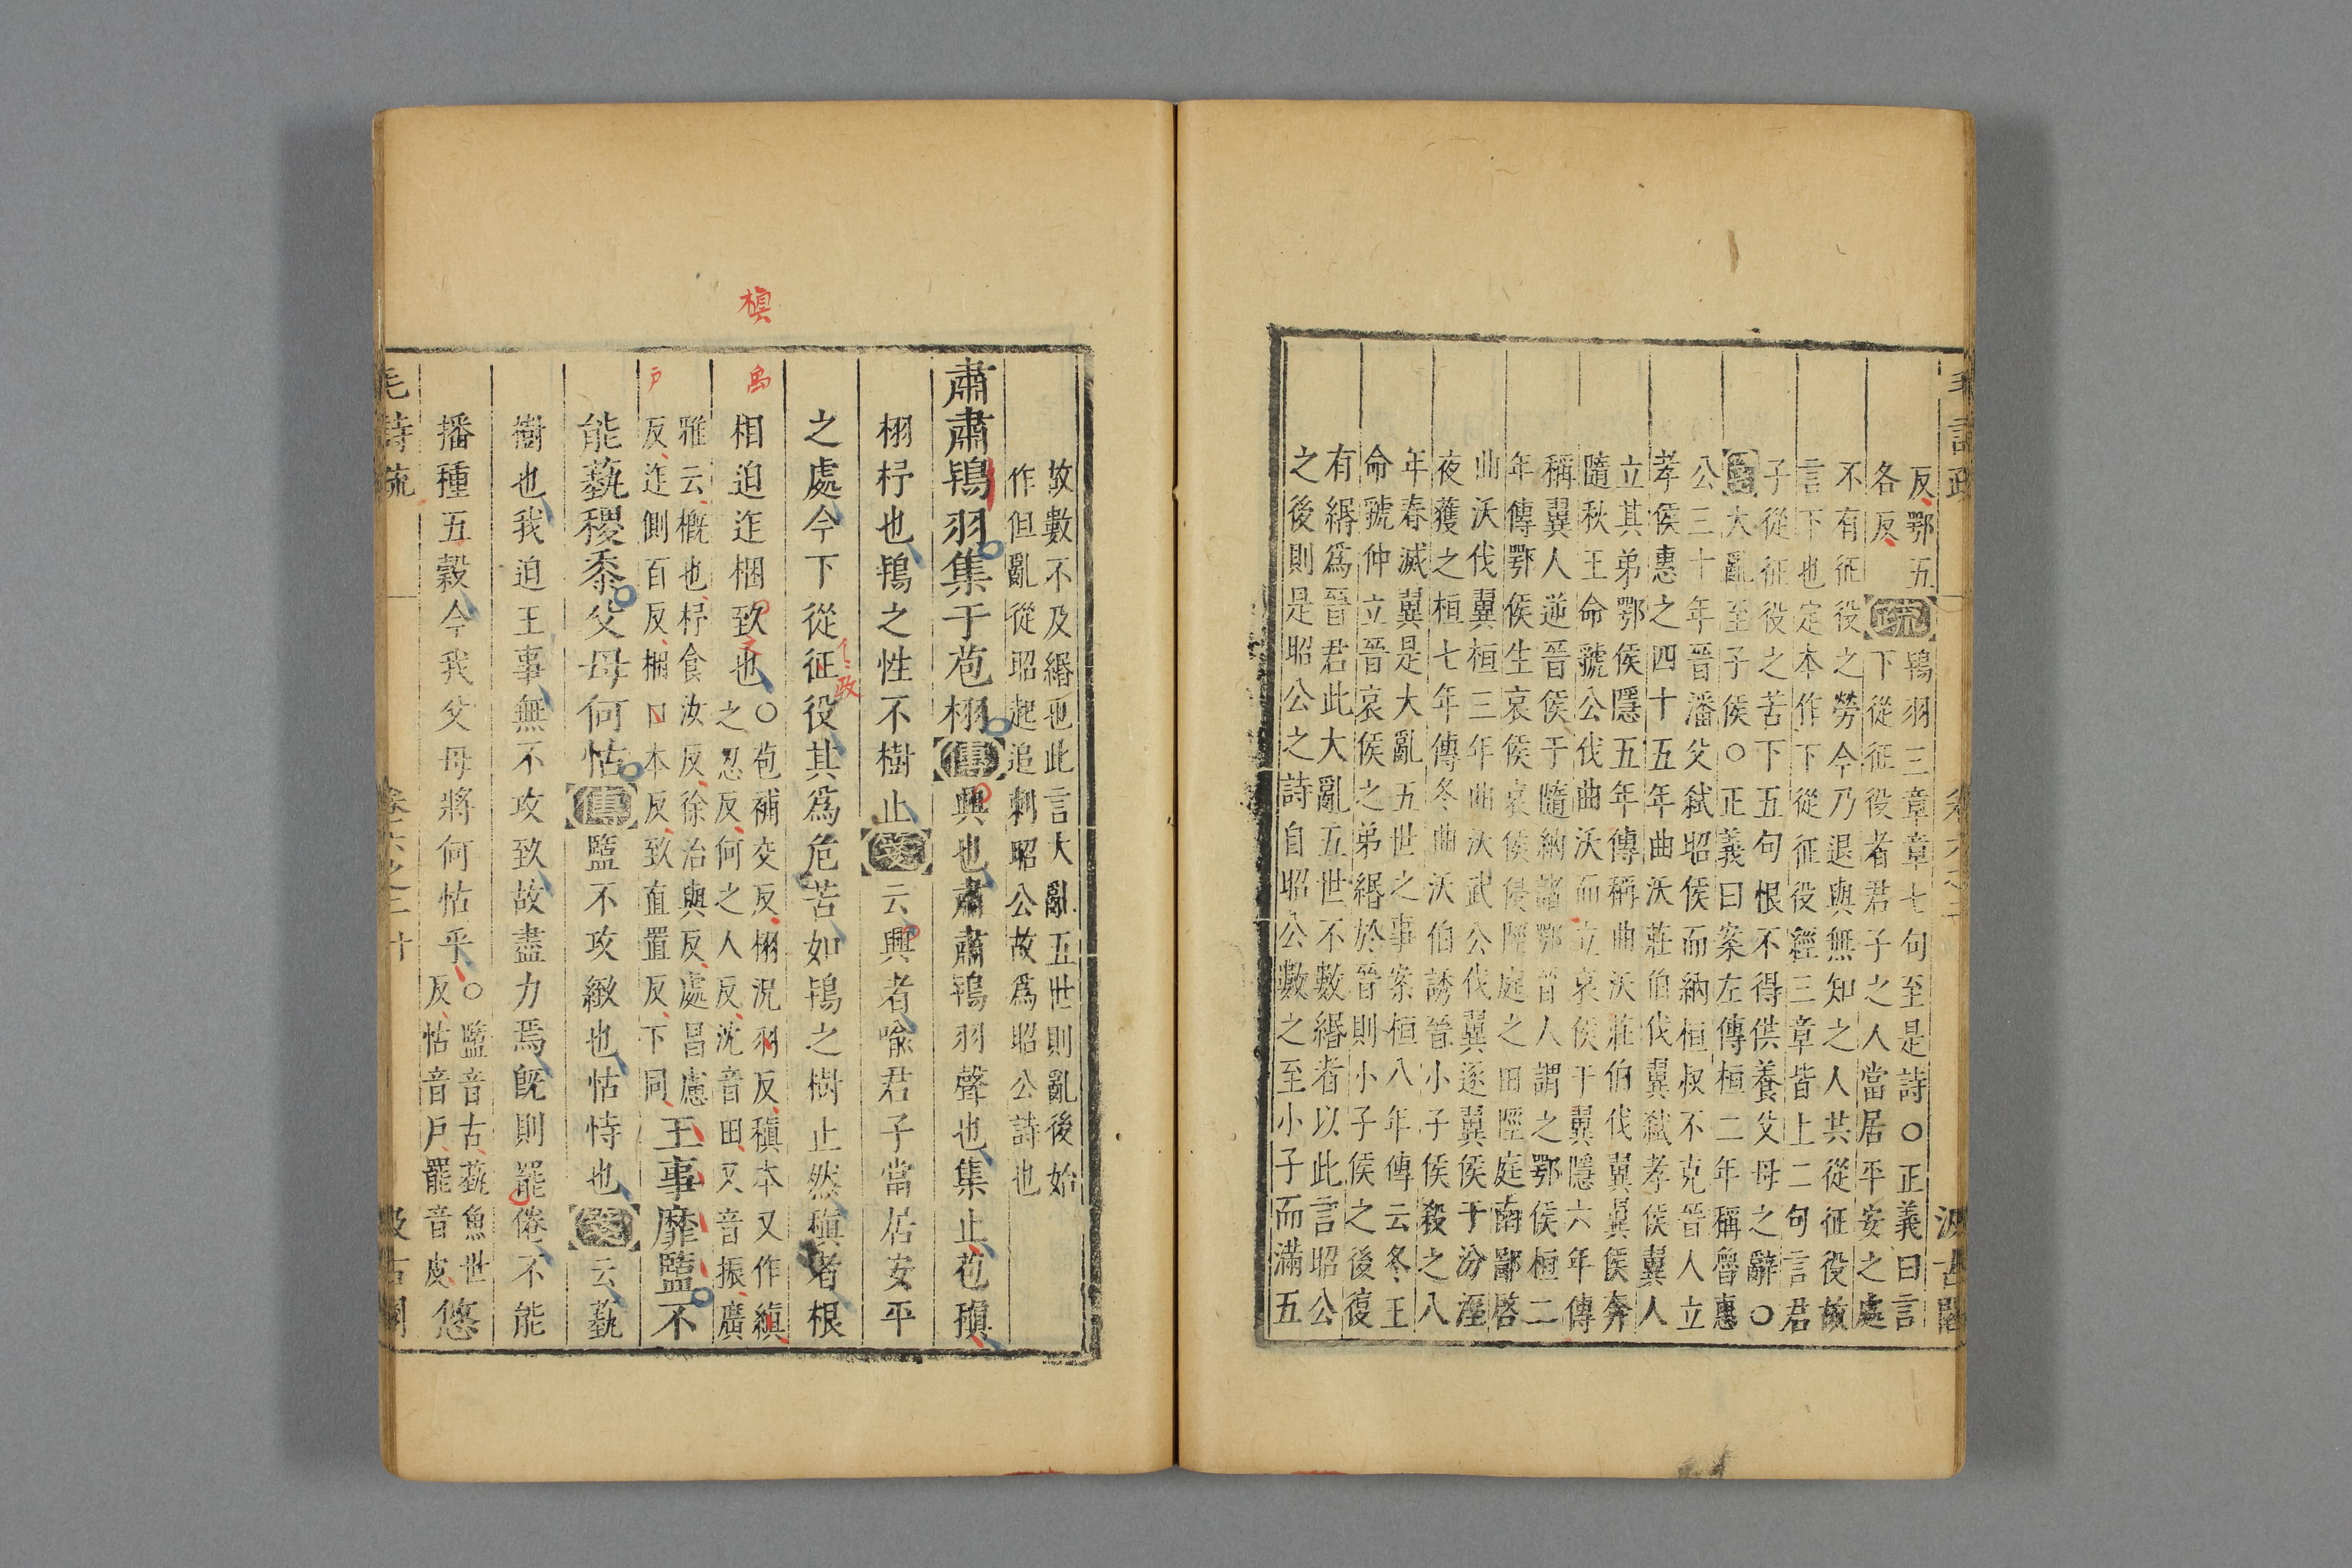 毛詩疏
卷六之二
汲古閣
反鄂五
各反
疏
鴇羽三章章七句至是詩○正義曰言
下從征役者君子之人當居平安之處
不有征役之勞今乃退與無知之人共從征役故
言下也定本作下從征役經三章皆上二句言君
子從征役之苦下五句恨不得供養父母之辭○
箋大亂至子侯○正義曰案左傳桓二年稱魯惠
公三十年晉潘父弑昭侯而納桓叔不克晉人立
孝侯惠之四十五年曲沃莊伯伐翼弑孝侯翼人
立其弟鄂侯隱五年傳稱曲沃莊伯伐翼翼侯奔
隨秋王命虢公伐曲沃而立哀侯于翼隱六年傳
稱翼人逆晉侯于隨納諸鄂晉人謂之鄂侯桓二
年傳鄂侯生哀侯哀侯侵陘庭之田陘庭南鄙啓
曲沃伐翼桓三年曲沃武公伐翼逐翼侯于汾溼
夜獲之桓七年傳冬曲沃伯誘晉小子侯殺之八
年春滅翼是大亂五世之事案桓八年傳云冬王
命虢仲立晉哀侯之弟緡於晉則小子侯之後復
有緡爲晉君此大亂五世不數緡者以此言昭公
之後則是昭公之詩自昭公數之至小子而滿五
故數不及緡也此言大亂五世則亂後始
作但亂從昭起追刺昭公故爲昭公詩也
肅肅鴇羽集于苞栩傳興也肅肅鴇羽聲也集止苞稹
栩杼也鴇之性不樹止箋云興者喻君子當居安平
之處今下從征役其爲危苦如鴇之樹止然稹者根
相迫迮梱致也○
苞補交反栩況羽反稹本又作縝
之忍反何之人反沈音田又音振廣
雅云概也杼食汝反徐治與反處昌慮
反迮側百反梱口本反致直置反下同
王事靡盬不
能蓺稷黍父母何怙傳盬不攻緻也怙恃也箋云蓺
樹也我迫王事無不攻致故盡力焉既則罷倦不能
播種五穀今我父母將何怙乎○
盬音古蓺魚世
反怙音戶罷音皮
悠
毛詩疏
卷六之二
汲古閣
槙
戶